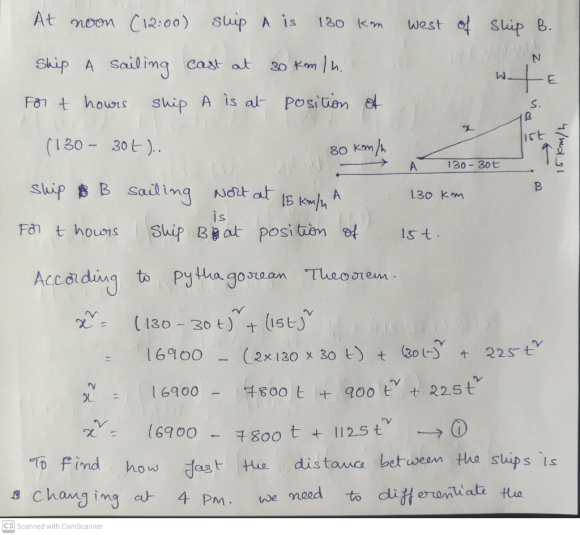 At noon (12:00) ship A is 130 km west of ship B.
Ship A sailing east at 30 km/h.
N
W E
S.
For t hours ship A is at position of
(130 - 30t)..
30 km/h
x
B
15t
15 km/h
A
130-30t
Ship B sailing Nort at 15 km/h
A
130 km
B
For t hours Ship B is at position of 15t.
According to pythagorean Theorem.
x² = (130 - 30t)² + (15t)²
= 16900 - (2×130×30t) + (30t)² + 225t²
x² = 16900 - 7800t + 900t² + 225t²
x² = 16900 - 7800t + 1125t² → ①
To find how fast the distance between the ships is
changing at 4 PM. we need to differentiate the
CS Scanned with CamScanner